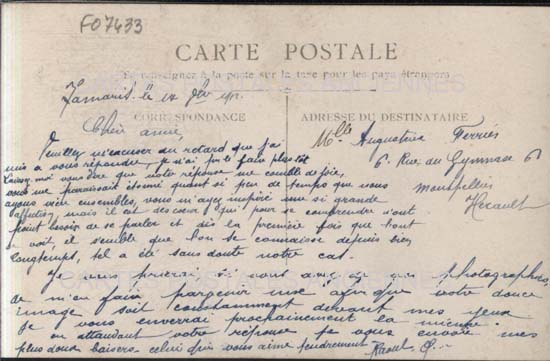 F07433
CARTE POSTALE
Se renseigner à la poste sur la taxe pour les pays étrangers
CORRESPONDANCE
Chère aimé
Veuillez m'excuser du retard que j'ai
mis à vous répondre, je n'ai pu le faire plus tôt
laissez moi vous dire que votre réponse me comble de joie,
vous me paraissait étonné quant si peu de temps que nous
ayons vécu ensembles, vous m'ayez inspiré une si grande
affection, mais il est des cœurs qui pour se comprendre n'ont
point besoin de se parler et dès la première fois que l'on
se voit, il semble que l'on se connaisse depuis bien
longtemps, tel a été sans doute notre cas.
Je vous prierai si vous avez photographie,
de m'en faire parvenir une afin que votre douce
image soit constamment devant mes yeux
je vous enverrai prochainement la mienne.
en attendant votre réponse je vous envoie mes
plus doux baisers celui qui vous aime tendrement Raoul
ADRESSE DU DESTINATAIRE
Mlle Augustine Ferriés
6 Rue du Gymnase 6
Montpellier
Hérault